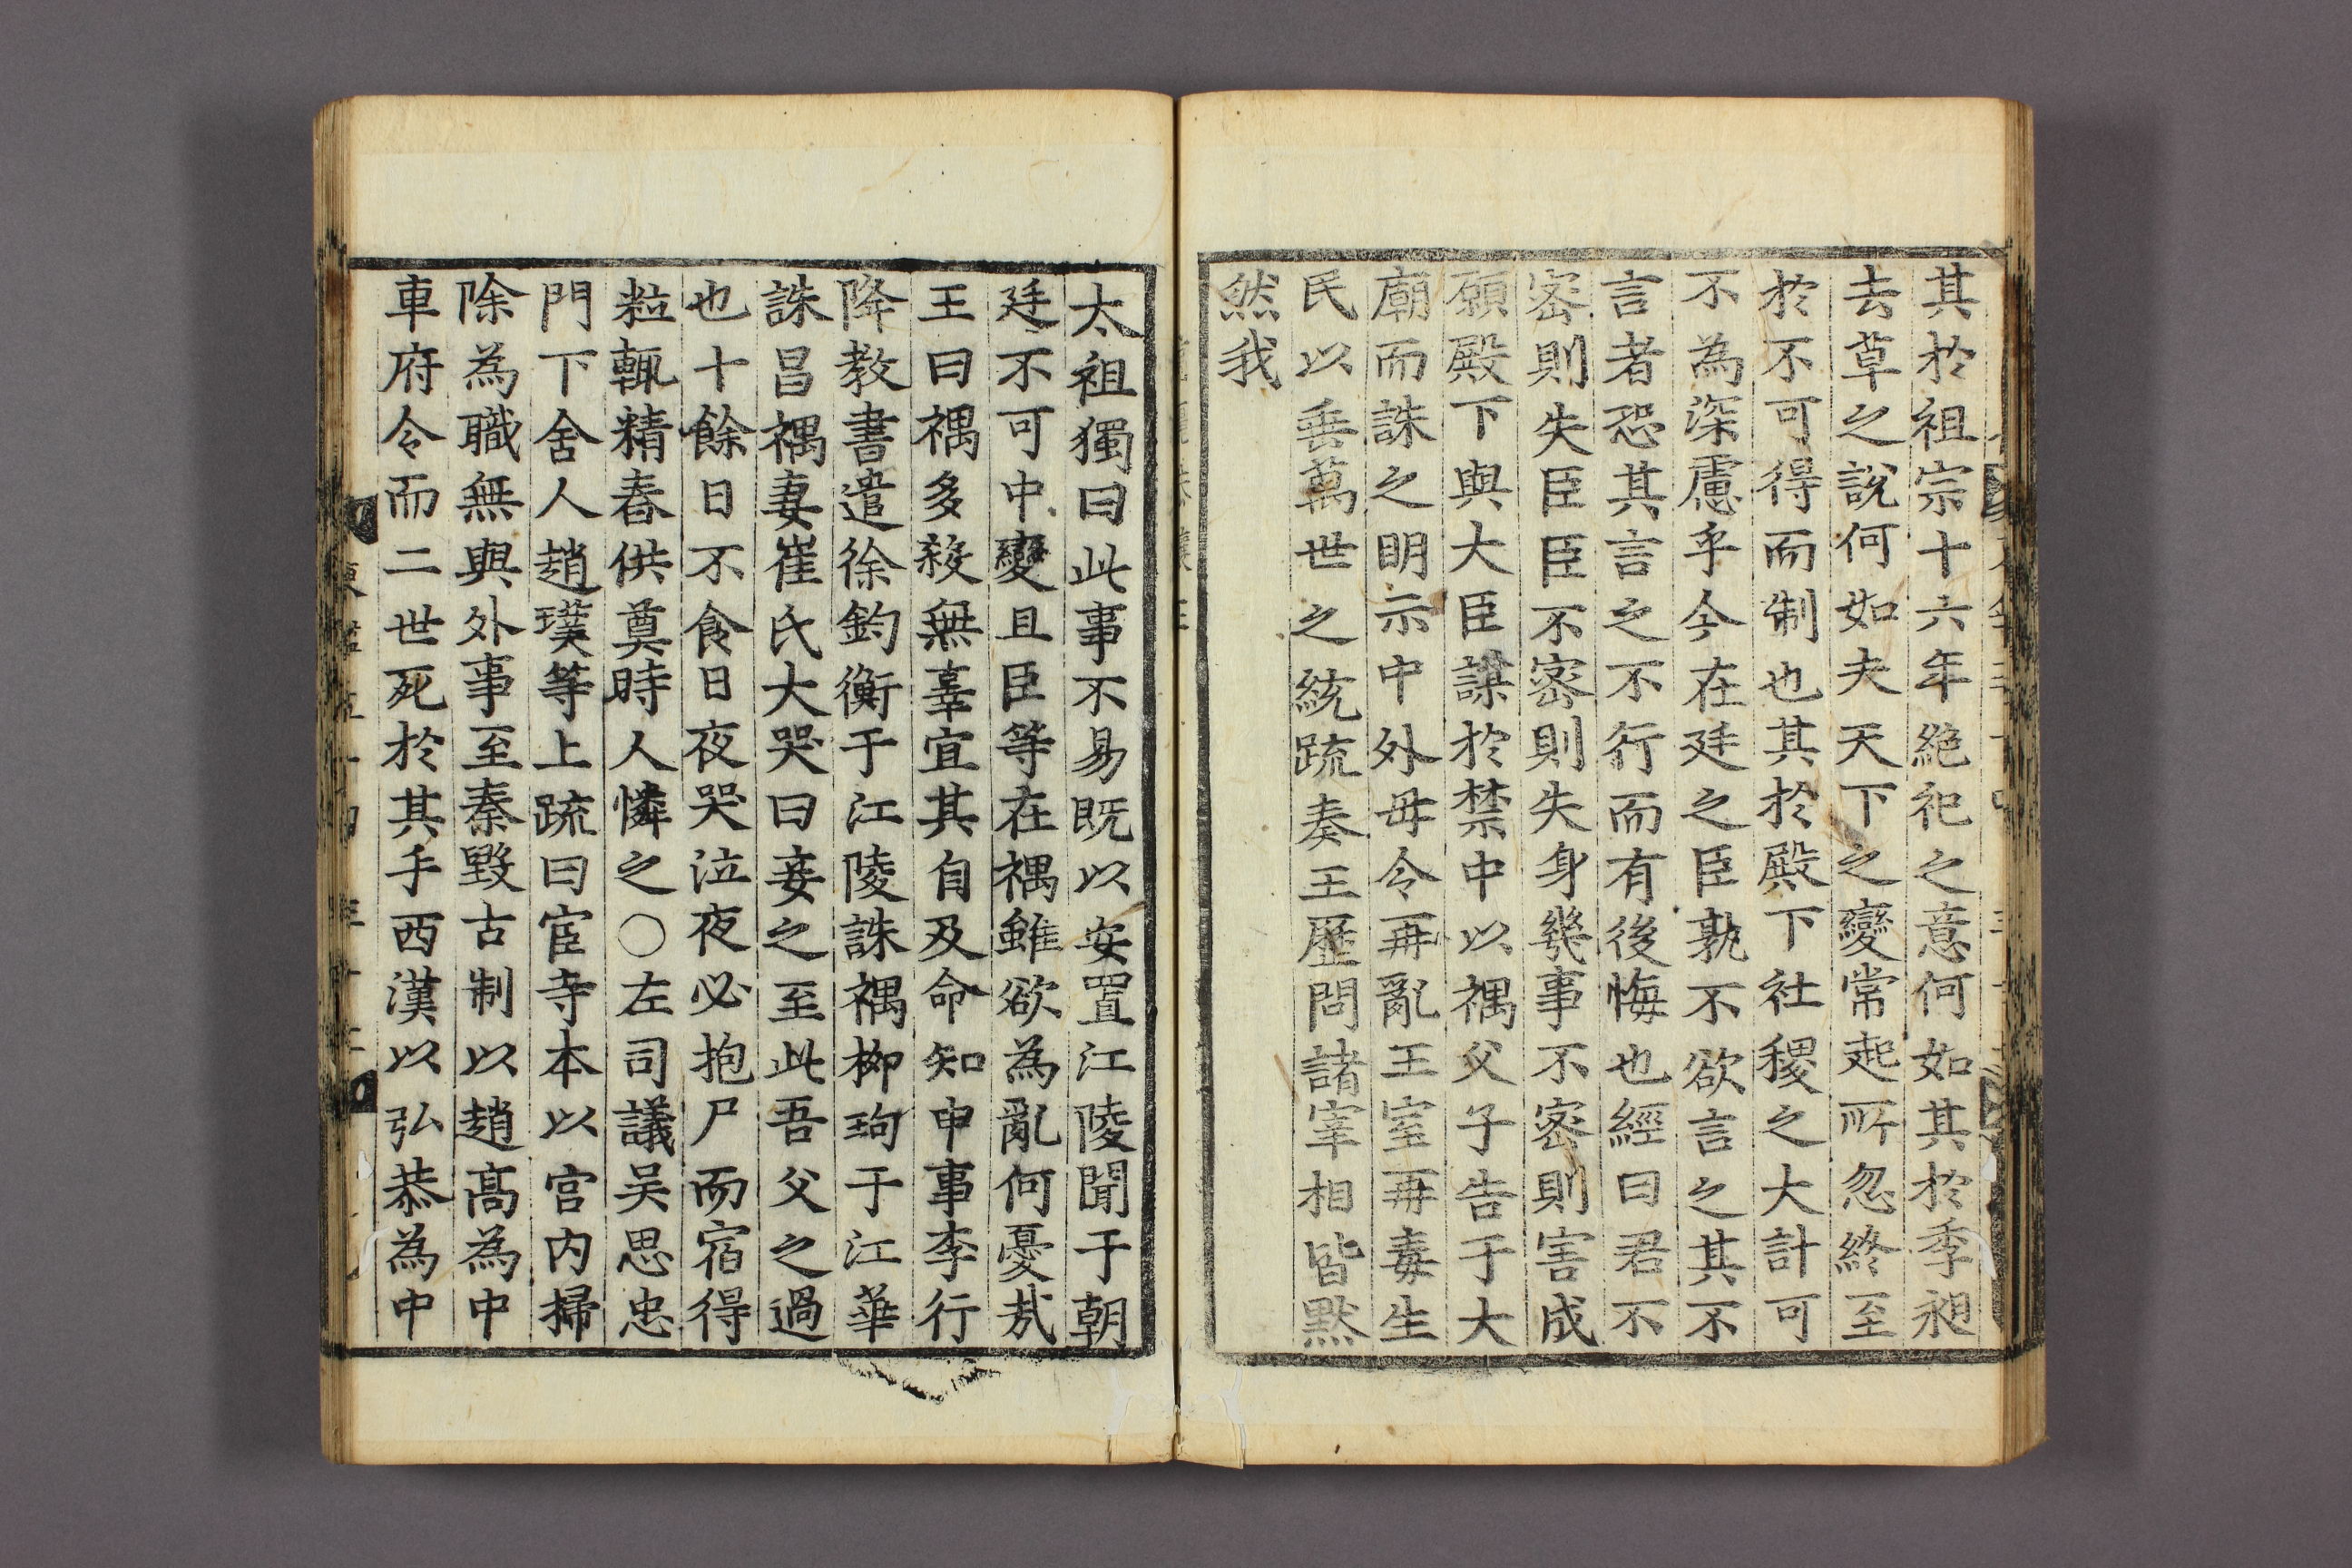 其於祖宗十六年絶祀之意何如其於季昶
去草之說何如夫天下之變常起所忽終至
於不可得而制也其於殿下社稷之大計可
不為深慮乎今在廷之臣孰不欲言之其不
言者恐其言之不行而有後悔也經曰君不
密則失臣臣不密則失身幾事不密則害成
願殿下與大臣謀於禁中以禑父子告于大
廟而誅之明示中外毋令再亂王室再毒生
民以垂萬世之統疏奏王歷問諸宰相皆默
然我
太祖獨曰此事不易既以安置江陵聞于朝
廷不可中變且臣等在禑雖欲為亂何憂㢤
王曰禑多殺無辜宜其自及命知申事李行
降教書遣徐鈞衡于江陵誅禑柳珣于江華
誅昌禑妻崔氏大哭曰妾之至此吾父之過
也十餘日不食日夜哭泣夜必抱尸而宿得
粒輒精舂供奠時人憐之○左司議吴思忠
門下舍人趙璞等上疏曰宦寺本以宫内掃
除為職無與外事至秦毀古制以趙髙為中
車府令而二世死於其手西漢以弘恭為中